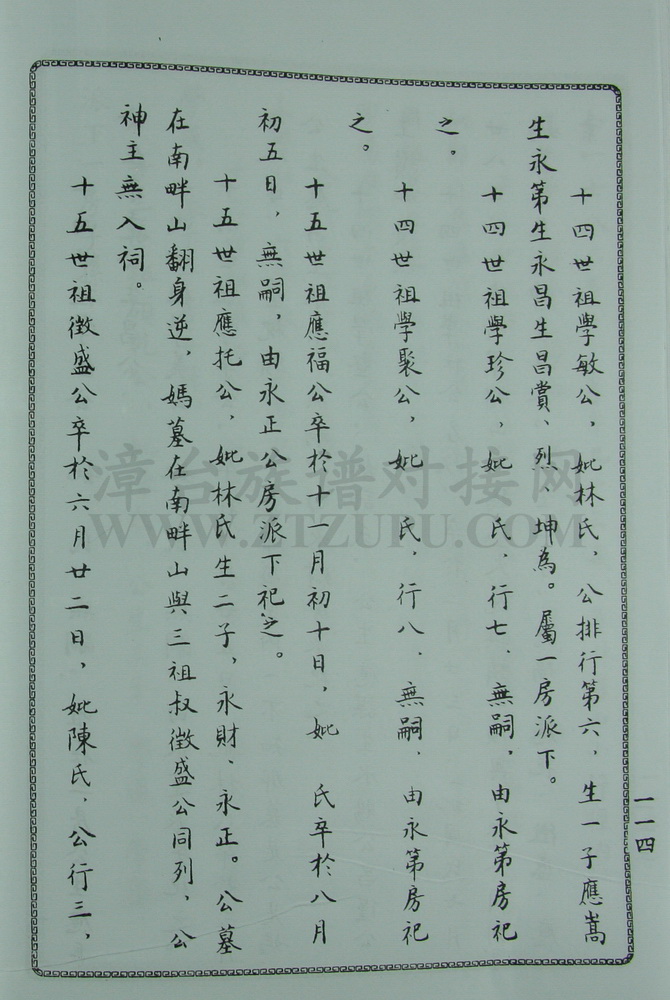 十四世祖學敏公，妣林氏，公排行第六，生一子應嵩
生永第生永昌生昌賞、烈、坤為。屬一房派下。
十四世祖學珍公，妣　氏，行七、無嗣，由永第房祀
之。
十四世祖學聚公，妣　氏，行八、無嗣，由永第房祀
之。
十五世祖應福公卒於十一月初十日，妣　氏卒於八月
初五日，無嗣，由永正公房派下祀之。
十五世祖應托公，妣林氏生二子，永財、永正。公墓
在南畔山翻身逆，媽墓在南畔山與三祖叔徵盛公同列，公
神主無入祠。
十五世祖徵盛公卒於六月廿二日，妣陳氏，公行三，
一一四
漳台族谱对接网
WWW.ZTZUPU.COM